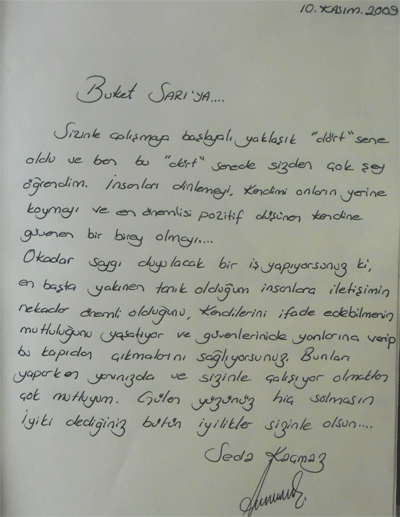 10. KASIM. 2009
Buket SARI'YA....
Sizinle çalışmaya başlayalı, yaklaşık "dört" sene
oldu ve ben bu "dört" senede sizden çok şey
öğrendim. İnsanları dinlemeyi, kendimi onların yerine
koymayı ve en önemlisi pozitif düşünen kendine
güvenen bir birey olmayı....
Okadar saygı duyulacak bir iş yapıyorsunuz ki,
en başta yakınen tanık olduğum insanlara iletişimin
nekadar önemli olduğunu, kendilerini ifade edebilmenin
mutluluğunu yaşatıyor ve güvenlerinide yanlarına verip
bu kapıdan çıkmalarını sağlıyorsunuz. Bunları
yaparken yanınızda ve sizinle çalışıyor olmaktan
çok mutluyum. Gülen yüzünüz hiç solmasın
iyiki dediğiniz bütün iyilikler sizinle olsun....
Seda Kaçmaz